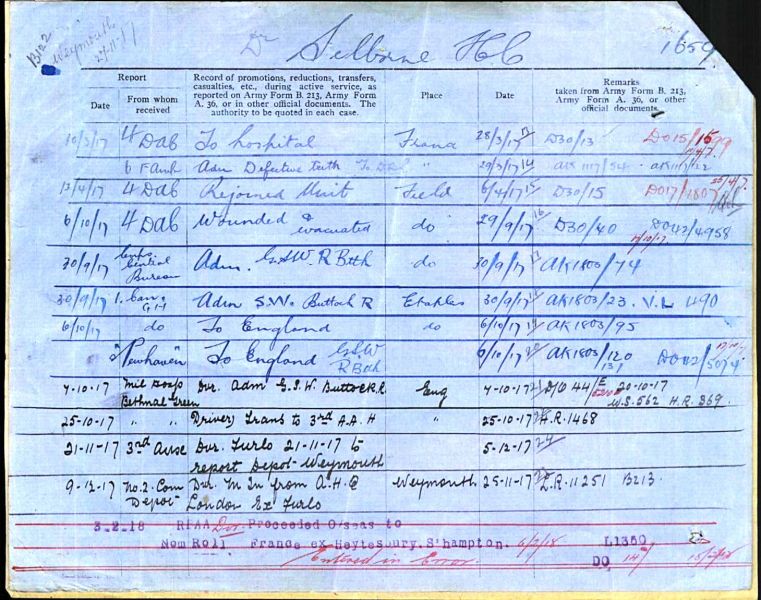 B122
Weymouth
27-11-17
Dr Selborne H C 1659
Report
Date
From whom received
Record of promotions, reductions, transfers, casualties, etc., during active service, as reported on Army Form B. 213, Army Form A. 36, or in other official documents. The authority to be quoted in each case.
Place
Date
Remarks
taken from Army Form B. 213, Army Form A. 36, or other official documents.
10/3/17 4 DAB To hospital France 28/3/17 D30/13 DO15/1599
6 F Amb Adm Defective teeth " 29/3/17
13/4/17 4 DAB Rejoined Unit Field 6/4/17 D30/15 DO17/1807
6/10/17 4 DAB Wounded & evacuated do 29/9/17 D30/40 DO42/4958
30/9/17 Central Bureau Adm. G.S.W. R Btth do 30/9/17 AK1803/74
30/9/17 1. Can. G.H Adm S.W. Buttock R Etaples 30/9/17 AK1803/23. V.L 490
6/10/17 do To England do 6/10/17 AK1803/95
"Newhaven" To England G.S.W R Bth 6/10/17 AK1803/120 DO42/5074
7-10-17 Mil Hosp Bethnal Green Dvr. Adm G.S.W. Buttock R. Eng 7-10-17 20-10-17
W.S. 562 H.R. 369.
25-10-17 " " Driver, Trans to 3rd A.A.H " 25-10-17 H.R. 1468
21-11-17 3rd Ause Dvr. Furlo 21-11-17 to 5-12-17
report Depot-Weymouth
9-12-17 No. 2. Com Depot Dvr. M In from A.H.Q London Ex Furlo Weymouth 25-11-17 L.R. 11251 B213.
3.2.18 RFAA Dvr. Proceeded O/seas to
Nom Roll France ex Heytesbury. S'hampton. 6/2/18 L1350
Entered in Error. DO 14